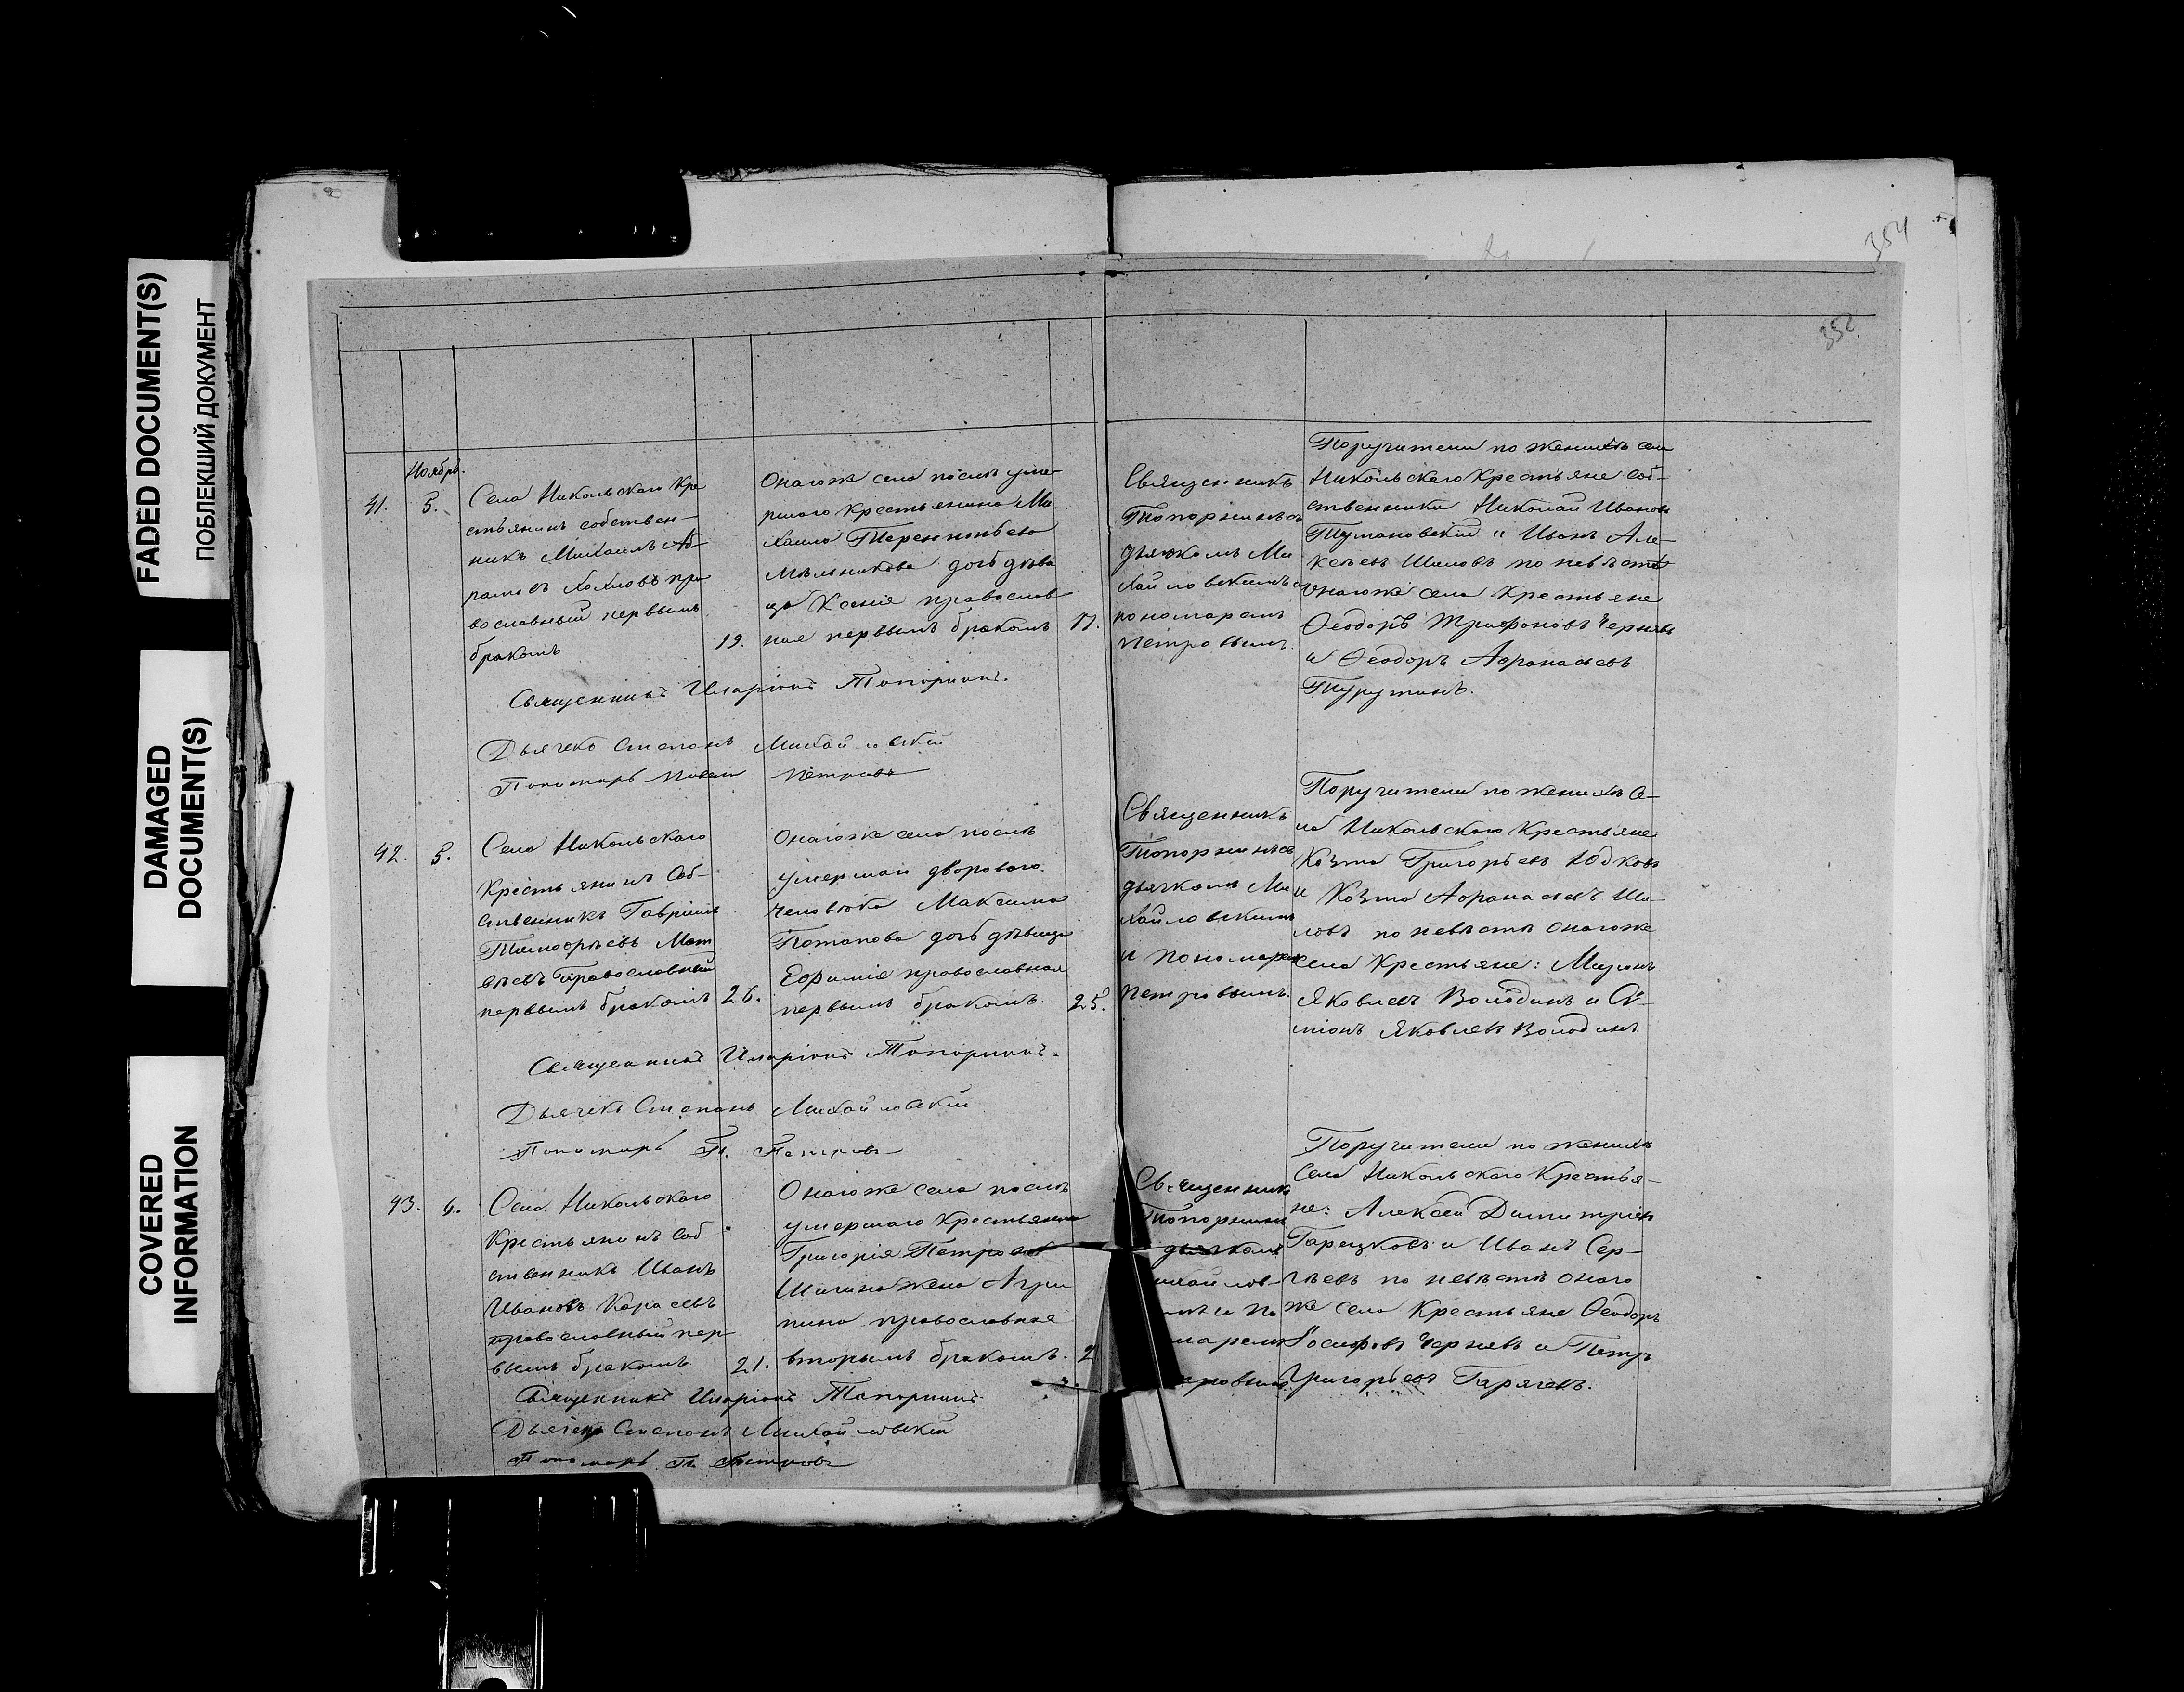 FADED DOCUMENT(S)
ПОБЛЕКШИЙ ДОКУМЕНТ
DAMAGED
DOCUMENT(S)
COVERED
INFORMATION
354
352
Ноябрь.
41. 5.
Села Никольскаго Кре
стьянинъ собствен-
никъ Михаилъ Аб-
рамовъ Хохловъ пра
вославный первымъ
бракомъ
19.
Онагоже села послѣ уме
ршаго Крестьянина Ми
хаила Терентьева
Мѣльникова дочь дѣви
ца Ксенія православ
ная первымъ бракомъ
17.
Священникъ
Топорнинъ съ
дьячкомъ Ми
хайловскимъ и
пономаремъ
Петровымъ.
Поручители по женихѣ села
Никольскаго Крестьяне соб-
ственники Николай Ивановъ
Тумановскій и Иванъ Але-
ксѣевъ Шиловъ по невѣстѣ
онагоже села Крестьяне
Ѳеодоръ Трифоновъ Черневъ
и Ѳеодоръ Афанасьевъ
Священникъ Иларіонъ Топорнинъ.
Дьячекъ Степанъ Михайловскій
Пономарь Павелъ Петровъ
42. 5.
Села Никольскаго
Крестьянинъ Соб-
ственникъ Гавріилъ
Тимофѣевъ Мат
вѣевъ Православный
первымъ бракомъ
26.
Онагоже села послѣ
умершаго двороваго
человѣка Максима
Потапова дочь дѣвица
Ефимія православная
первымъ бракомъ.
25.
Священникъ
Топорнинъ съ
дьячкомъ Ми
хайловскимъ
и пономаремъ
Петровымъ.
Поручители по женихѣ Се-
ла Никольскаго Крестьяне
Козма Григорьевъ Юдковъ
и Козма Афанасьевъ Ши-
ловъ по невѣстѣ онагоже
села Крестьяне: Миронъ
Яковлевъ Володинъ и Си-
міонъ Яковлевъ Володинъ
Священникъ Иларіонъ Топорнинъ.
Дьячекъ Степанъ Михайловскій
Пономарь П. Петровъ
43. 6.
Села Никольскаго
Крестьянинъ Соб
ственникъ Иванъ
Ивановъ Карасевъ
православный пер-
вымъ бракомъ
21.
Онагоже села послѣ
умершаго Крестьянина
Григорія Петрова
жена Агри
пина православная
вторымъ бракомъ.
2
Священник
Топорнинъ
дьячкомъ
хайлов-
мъ и по
маремъ
тровымъ
Поручители по женихѣ
Села Никольскаго Крестья-
не: Алексѣй Димитріевъ
Гарецковъ и Иванъ Сер-
гѣевъ по невѣстѣ онаго
же села Крестьяне Ѳеодоръ
Іосифовъ Черневъ и Петръ
Григорьевъ Гарячевъ.
Священникъ Иларіонъ Топорнинъ
Дьячекъ Степанъ Михайловскій
Пономарь П. Петровъ